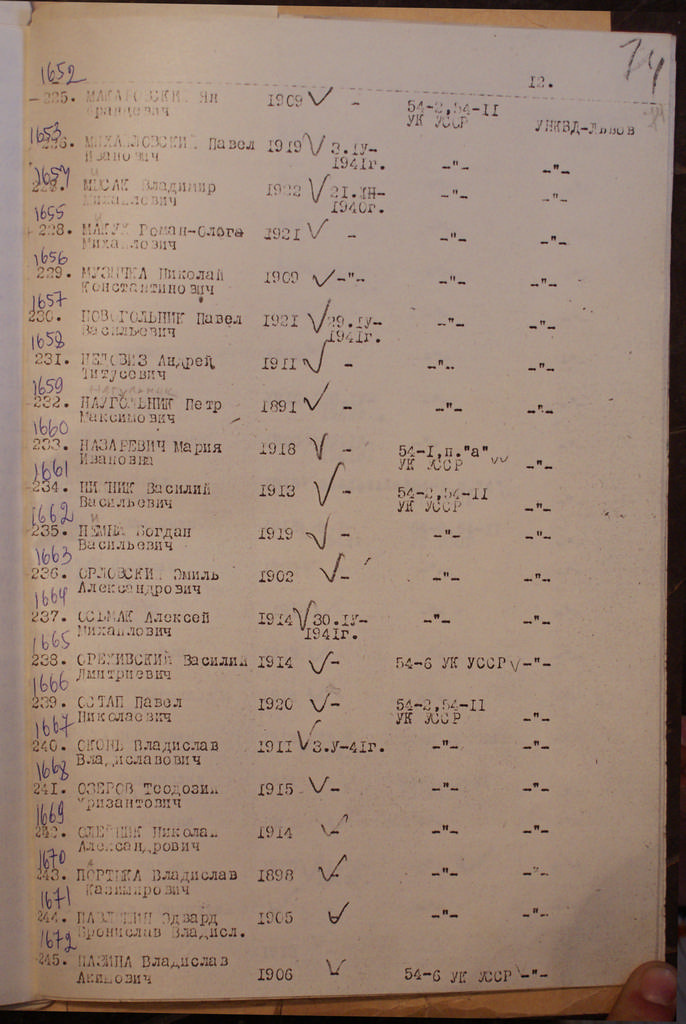 74
12.
1652
225. МАКАРОВСКИЙ Ян 1909 - 54-2,54-II
Францевич УК УССР УНКВД-Львов
1653
226. МИХАЙЛОВСКИЙ Павел 1919 3.IУ- -"- -"-
Иванович 1941г.
1654
Владимир 1922 -"- -"-
Михайлович 1940г.
1655
228. Роман-Олега 1921 - -"- -"-
Михайлович
1656
229. МУЗИЧКА Николай 1909 -"- -"- -"-
Константинович
1657
230. НОВОГОЛЬНИК Павел 1921 29.IУ- -"- -"-
Васильевич 1941г.
1658
231. Андрей 1911 - -"- -"-
Титусович
1659
232. НАУГОЛЬНИК Петр 1891 - -"- -"-
Максимович
1660
233. НАЗАРЕВИЧ Мария 1918 - 54-I,п."а"
Ивановна УК УССР -"-
1661
234. Василий 1913 - 54-2,54-II
Васильевич УК УССР -"-
1662
235. Богдан 1919 - -"- -"-
Васильевич
1663
236. ОРЛОВСКИЙ Эмиль 1902 - -"- -"-
Александрович
1664
237. ОСЬМАК Алексей 1914 30.IУ- -"- -"-
Михайлович 1941г.
1665
238. ОРЕХИВСКИЙ Василий 1914 - 54-6 УК УССР -"-
Дмитриевич
1666
239. ОСТАП Павел 1920 - 54-2,54-II
Николаевич УК УССР -"-
1667
240. ОКОНЬ Владислав 1911 3.У-41г. -"- -"-
Владиславович
1668
241. ОЗЕРОВ Теодозий 1915 - -"- -"-
Хризантович
1669
242. ОЛЕЙНИК Николай 1914 - -"- -"-
Александрович
1670
243. Владислав 1898 - -"- -"-
Казимирович
1671
244. Эдвард 1905 -"- -"-
Бронислав Владисл.
1672
245. ПАЗИНА Владислав
Акимович 1906 54-6 УК УССР -"-